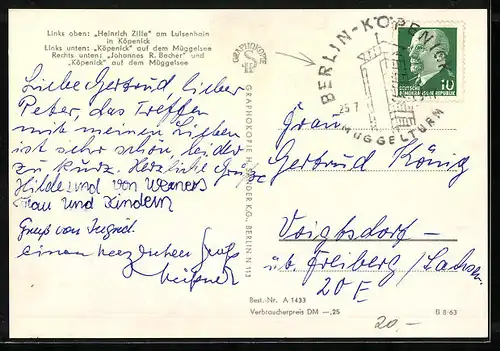 Links oben: „Heinrich Zille" am Luisenhain
in Köpenick
Links unten: „Köpenick" auf dem Müggelsee
Rechts unten: „Johannes R. Becher" und
„Köpenick" auf dem Müggelsee
Liebe Gertrud, lieber
Peter, das Treffen
mit meinen Lieben
ist sehr schön, leider
zu kurz. Herzliche Grüße
Hilde und von Werners
Frau und Kindern
Gruß von Ingrid.
einen herzlichen Gruß
GRAPHOKOPIE
GRAPHOKOPIE H. SANDER K.G., BERLIN N 113
BERLIN-KÖPENICK
25.7
MÜGGELTURM
10
DEUTSCHE
DEMOKRATISCHE REPUBLIK
Frau
Gertrud König
Voigtsdorf –
üb. Freiberg / Sachsen
20 F
Best.-Nr. A 1433
Verbraucherpreis DM –,25
B 8/63
20.–